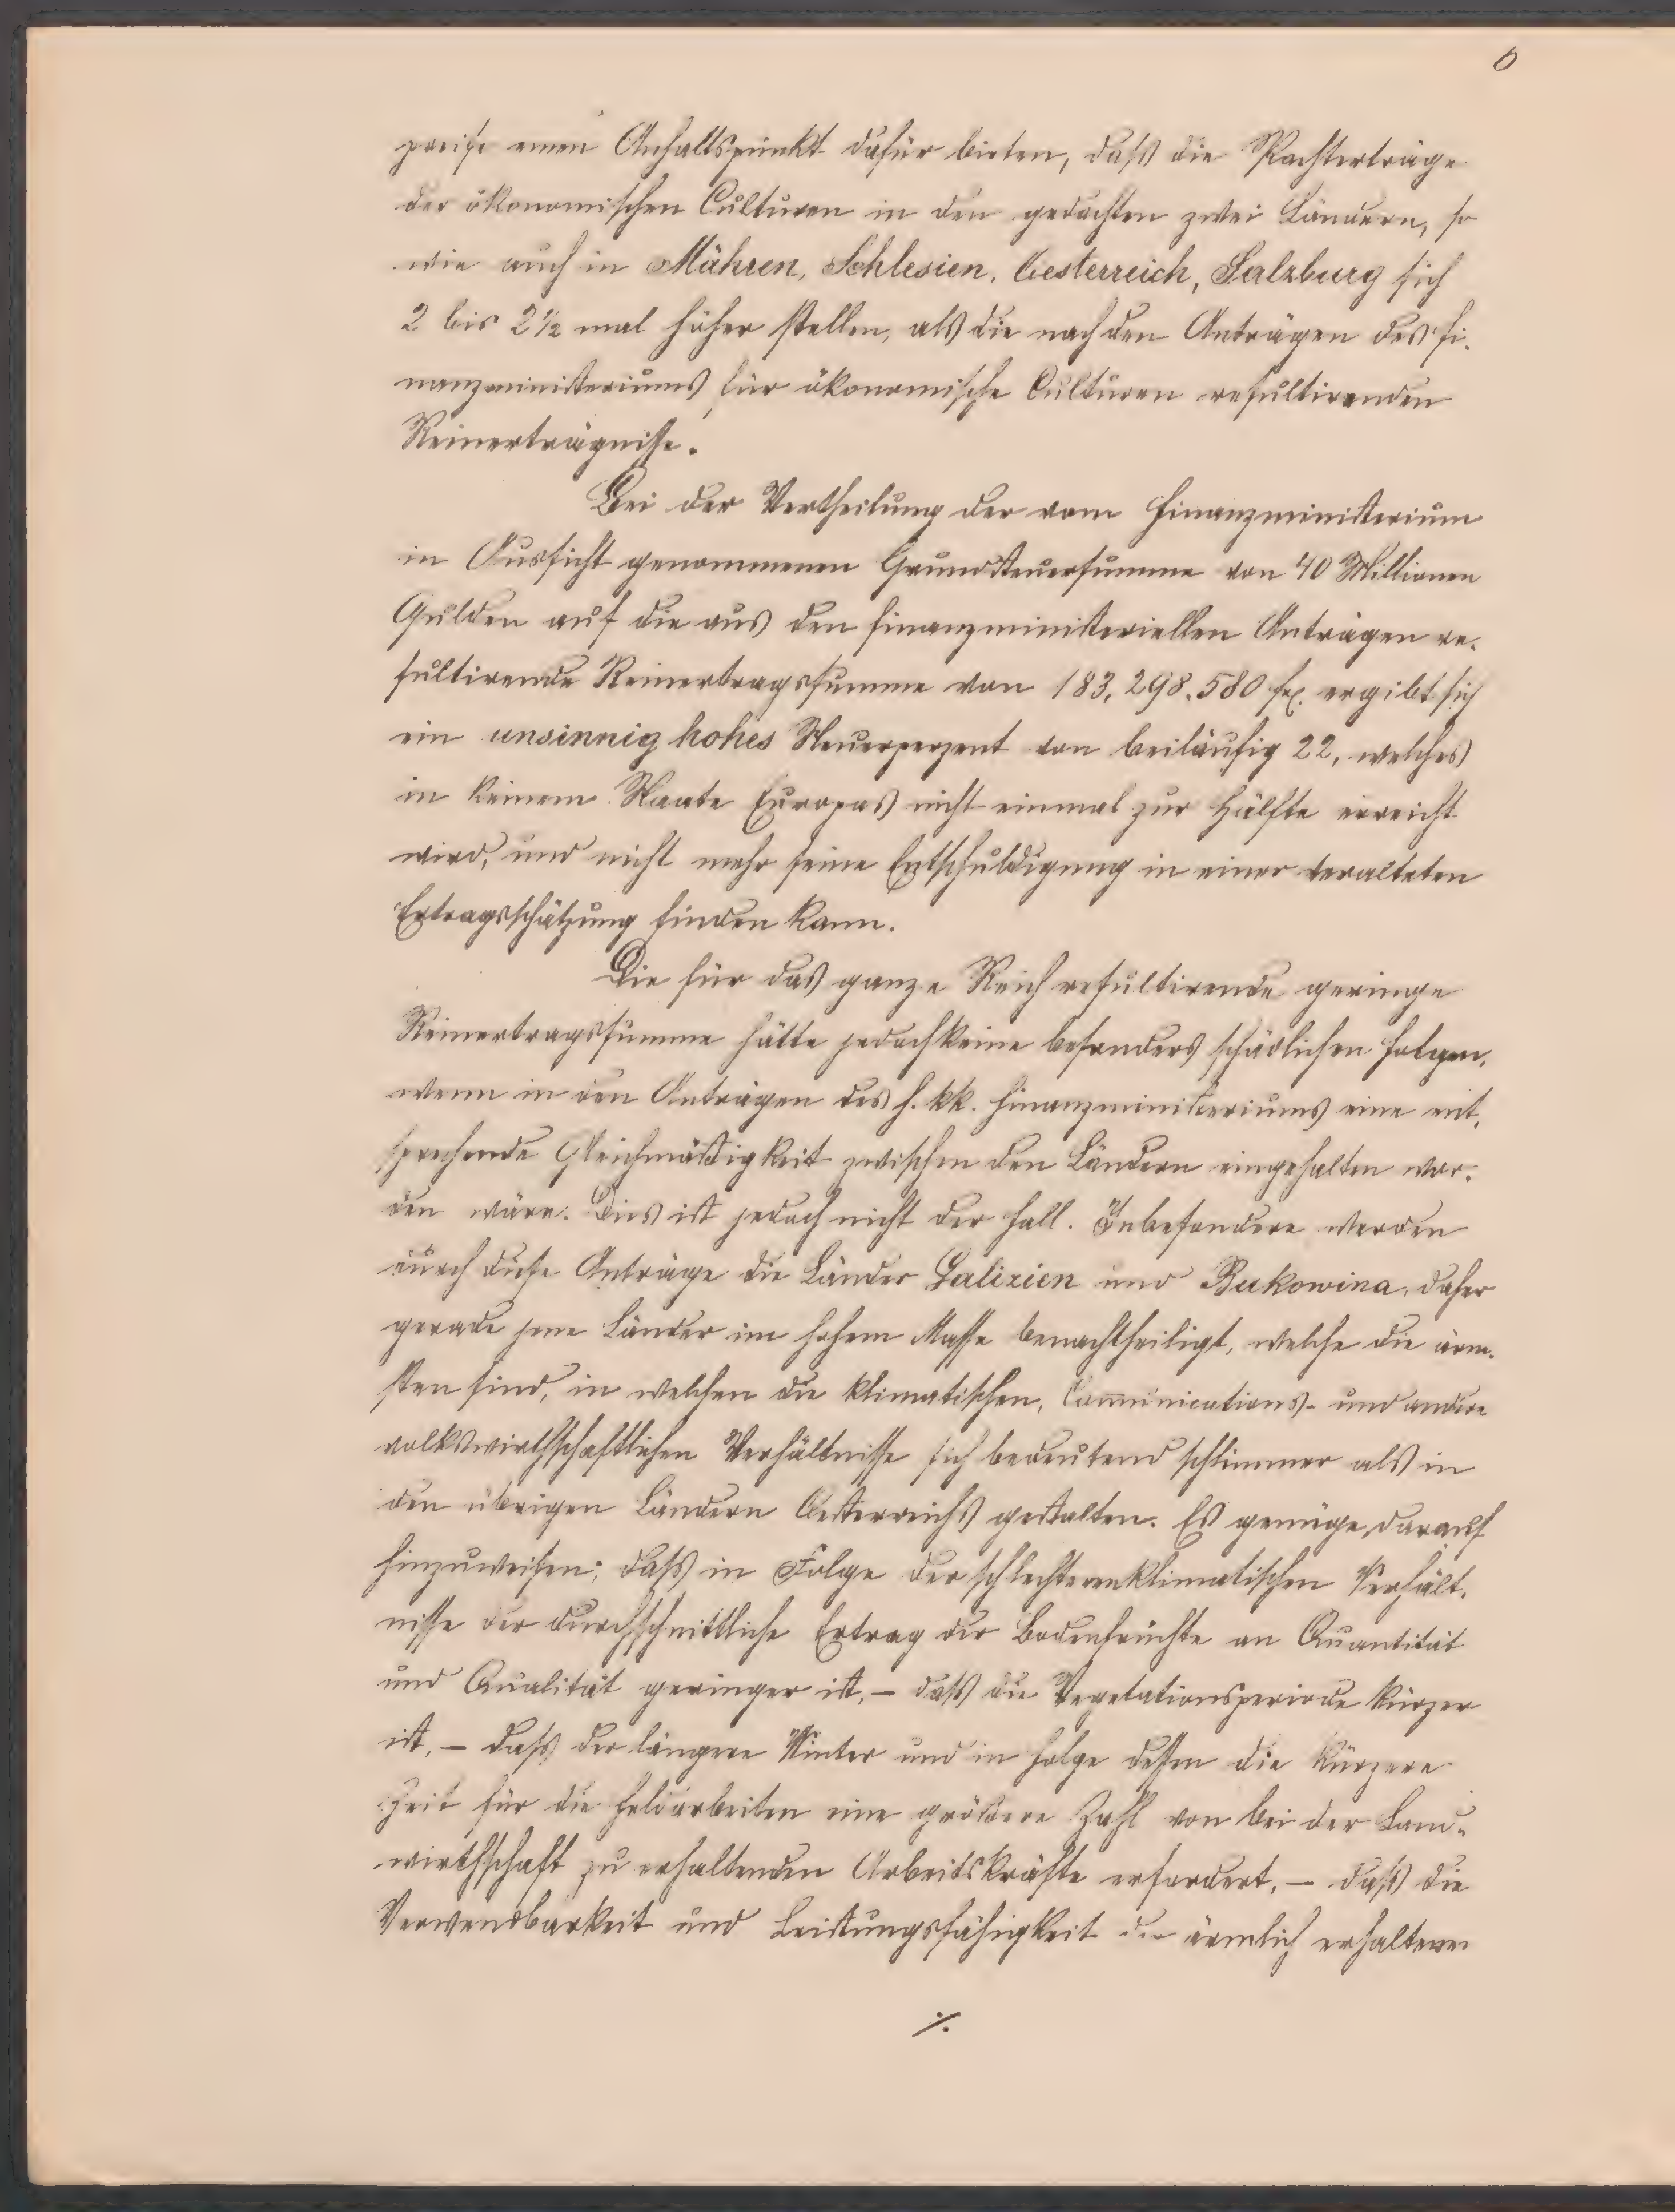 6
preise einen Anhaltspunkt dafür bieten, daß die Pachterträge
der ökonomischen Culturen in den gedachten zwei Ländern, so
wie auch in Mähren, Schlesien, Oesterreich, Salzburg sich
2 bis 2½ mal höher stellen, als die nach den Anträgen des Fi-
nanzministeriums für ökonomische Culturen resultirenden
Reinerträgnisse.
Bei der Vertheilung der vom Finanzministerium
in Aussicht genommenen Grundsteuersumme von 40 Millionen
Gulden auf die aus den finanzministeriellen Anträgen re-
sultirende Reinertragssumme von 183,298.580 fl. ergibt sich
ein unsinnig hohes Steuerperzent von beiläufig 22, welches
in keinem Staate Europas nicht einmal zur Hälfte erreicht
wird, und nicht mehr seine Entschuldigung in einer veralteten
Ertragsschätzung finden kann.
Die für das ganze Reich resultirende geringe
Reinertragssumme hätte jedoch keine besonders schädlichen Folgen,
wenn in den Anträgen des h. kk. Finanzministeriums eine ent-
sprechende Gleichmäßigkeit zwischen den Ländern eingehalten wor-
den wäre. Dies ist jedoch nicht der Fall. Inbesondere werden
durch diese Anträge die Länder Galizien und Bukowina, daher
gerade jene Länder im hohem Masse benachtheiligt, welche die ärm-
sten sind, in welchen die klimatischen, Communications- und andere
volkswirthschaftlichen Verhältnisse sich bedeutend schlimmer als in
den übrigen Ländern Oesterreichs gestalten. Es genüge, darauf
hinzuweisen; daß in Folge der schlechteren klimatischen Verhält-
nisse der durchschnittliche Ertrag der Bodenfrüchte an Quantität
und Qualität geringer ist, – daß die Vegetationsperiode kürzer
ist, – daß der längere Winter und in Folge dessen die kürzere
Zeit für die Feldarbeiten eine größere Zahl von bei der Land-
wirthschaft zu erhaltenden Arbeitskräfte erfordert, – daß die
Verwendbarkeit und Leistungsfähigkeit der ärmlich erhaltenen
./.